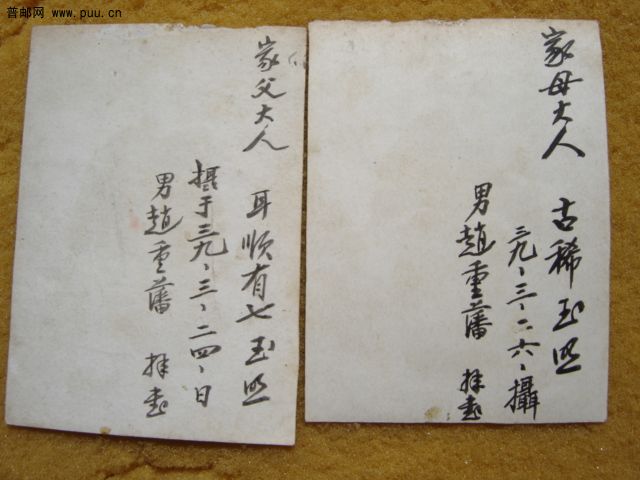 普邮网 www.puu.cn
家父大人 耳順有七玉照
摄于三九、三、二四、日
男趙重藩 拜書
家母大人 古稀玉照
三九、三、二六、攝
男趙重藩 拜書